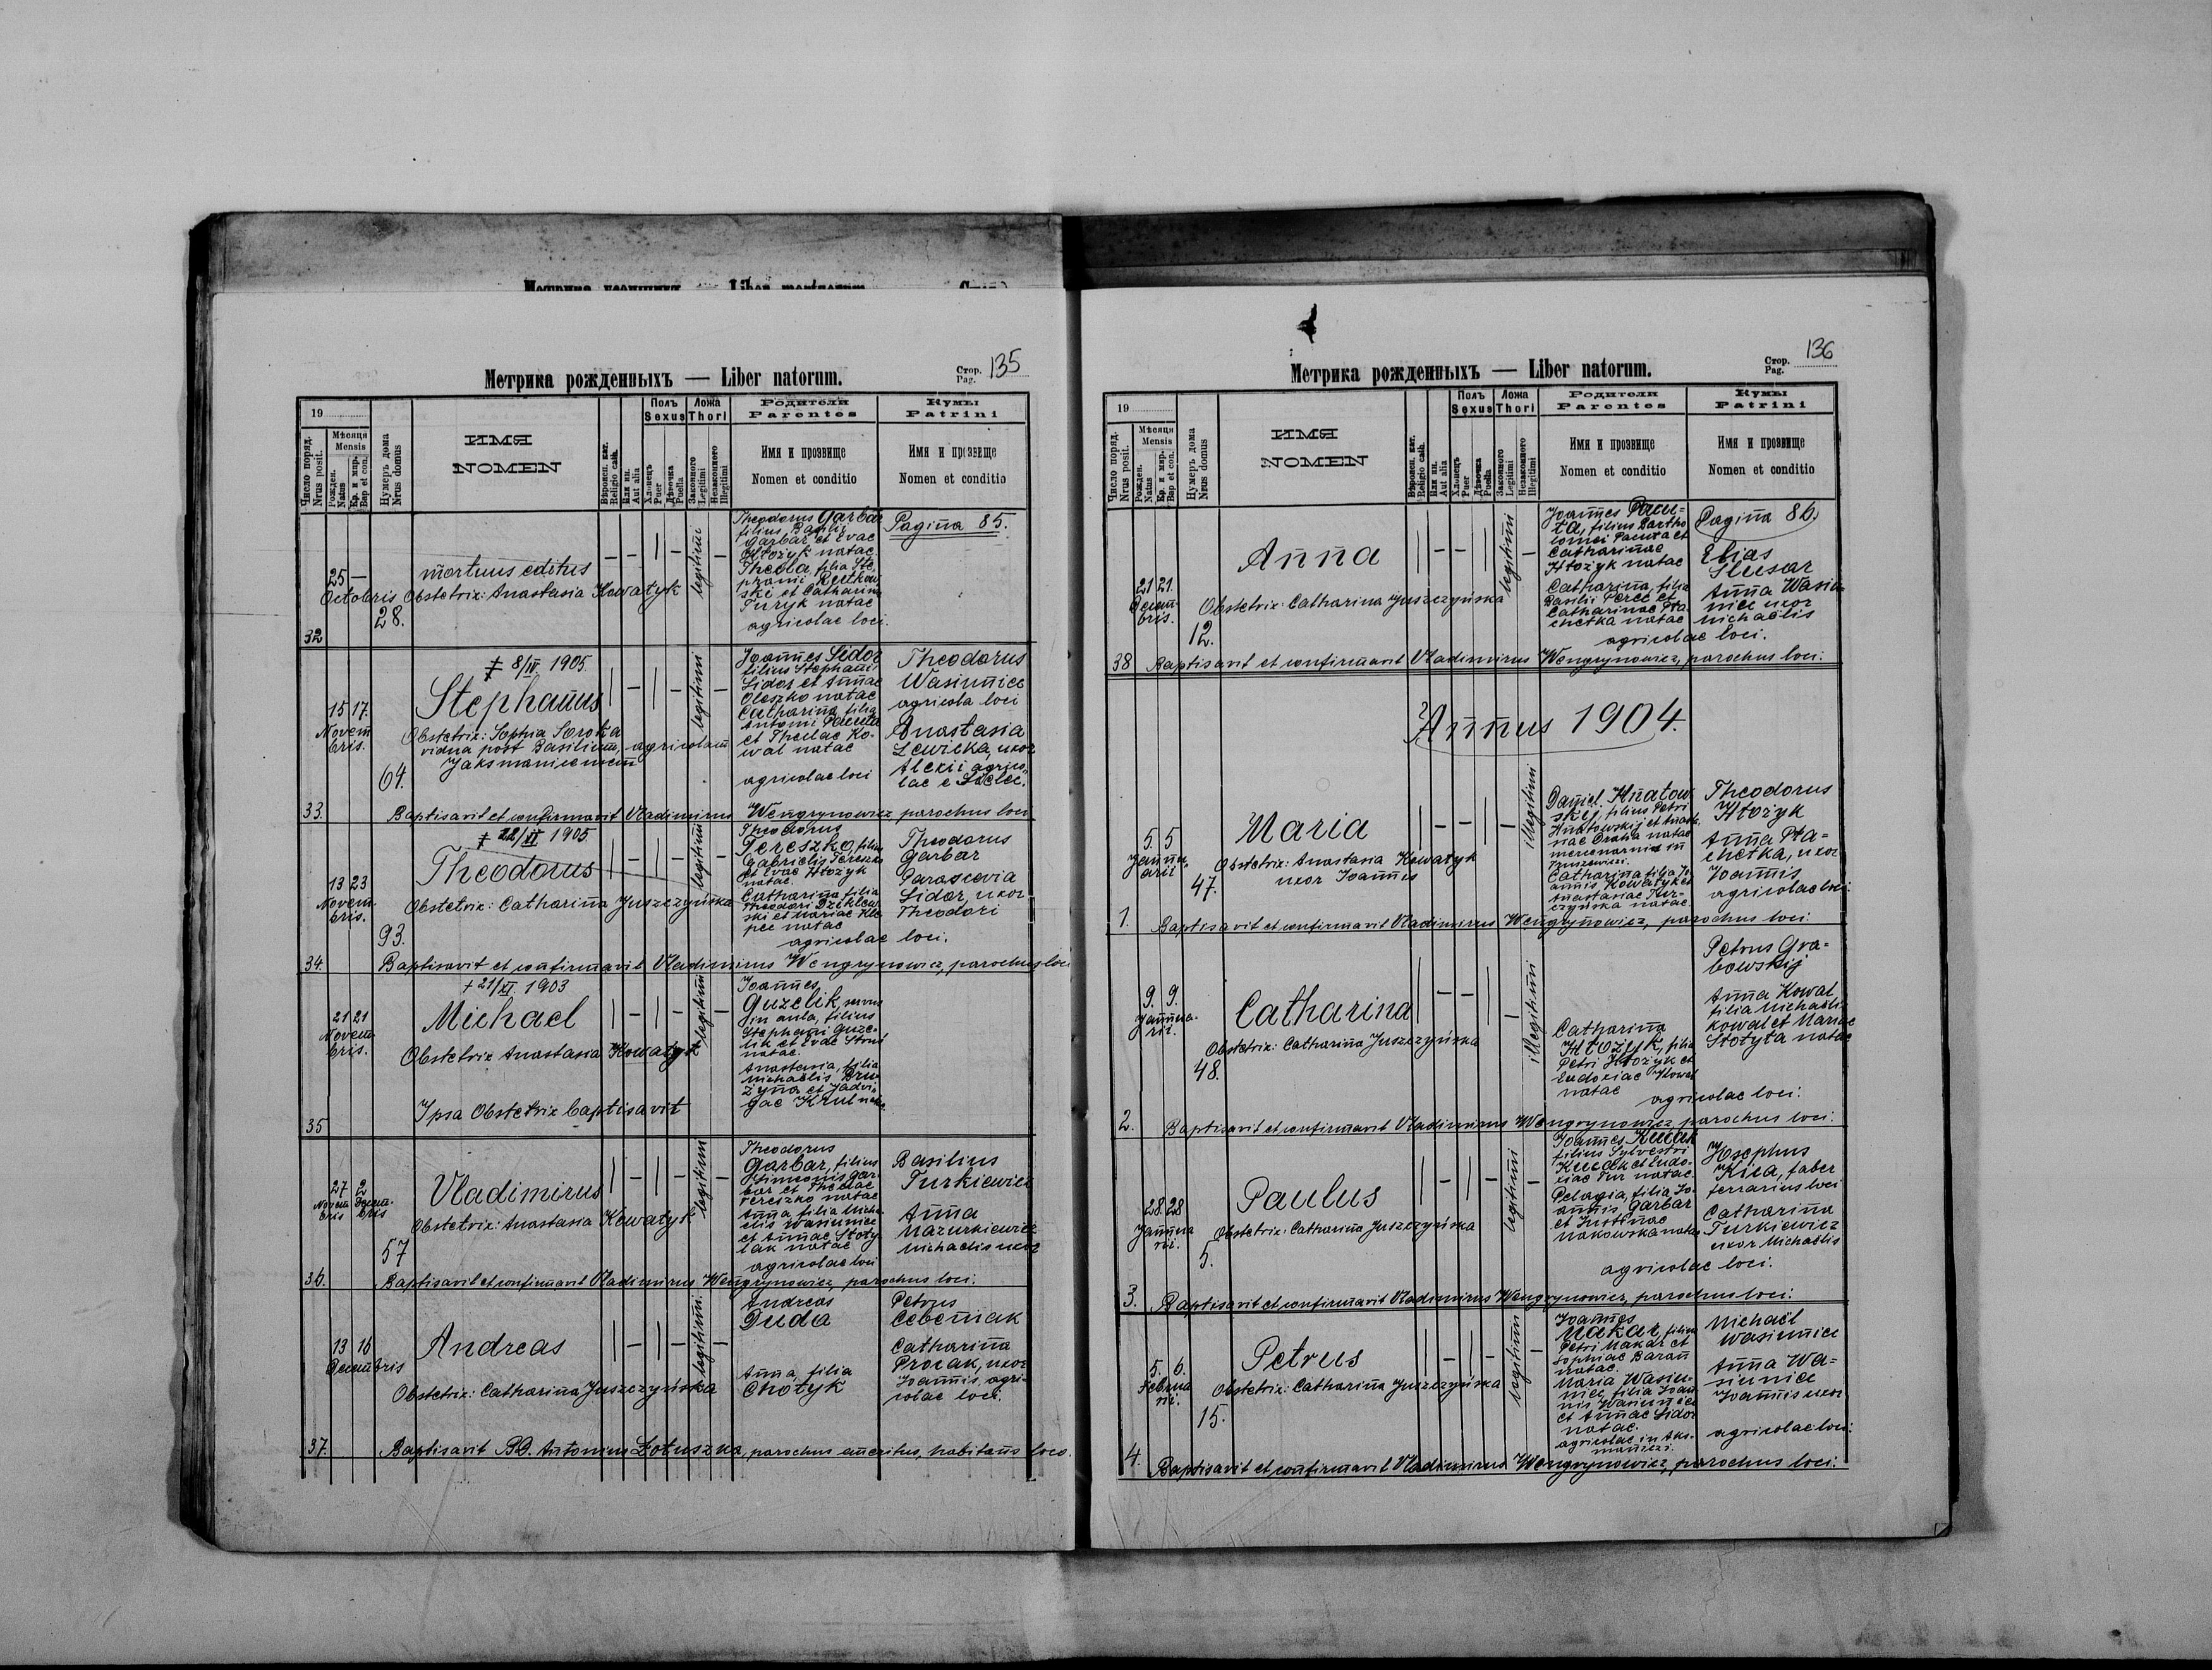 Метрика рожденныхъ — Liber natorum.
Стор. Pag. 135
19
Число поряд. Nrus posit.
Мѣсяця Mensis
Рожден. Natus
Кр. и мир. Bap et con.
Нумеръ дома Nrus domus
ИМЯ
NOMEN
Вѣроисп. кат. Religio cath.
Или ин. Aut alia
Полъ Sexus
Хлопець Puer
Дѣвочка Puella
Ложа Thori
Законного Legitimi
Незаконного Illegitimi
Родители Parentes
Имя и прозвище
Nomen et conditio
Кумы Patrini
Имя и прозвище
Nomen et conditio
Pagina 85.
32
25 —
Octobris
28.
mortuus editus
Obstetrix: Anastasia Kowałyk
legitimi
Theodorus Garbar
filius Basilii
Garbar et Evae
Htożyk natae
Thecla, filia Ste-
phani Rutkow-
ski et Catharina
Turyk natae
agricolae loci.
33.
15 17.
Novem
bris.
64.
‡ 8/IV 1905.
Stephanus
Obstetrix: Sophia Soroka
vidua post Basilium, agricolam
Jaksmanicensem
legitimi
Joannes Sidor
filius Stephani
Sidor et Annae
Oleszko natae
Catharina filia
Antonii Pacuta
et Theclae Ko-
wal natae
agricolae loci
Theodorus
Wasiunice
agricola loci
Anastasia
Lewicka, uxor
Alexii agrico-
lae e Siedlec.
Baptisavit et confirmavit Vladimirus Wengrynowicz parochus loci
34.
13 23
Novem-
bris.
93.
‡ 22/II 1905.
Theodorus
Obstetrix: Catharina Juszczyńska
legitimi
Theodorus
Tereszko, filius
Gabrielis Tereszko
et Evae Htożyk
natae.
Catharina filia
Theodori
ski et Mariae
natae
agricolae loci.
Theodorus
Garbar
Parascevia
Sidor, uxor
Theodori
Baptisavit et confirmavit Vladimirus Wengrynowicz, parochus loci
35
21 21
Novem-
bris.
+ 21/XI. 1903
Michael
Obstetrix Anastasia Kowałyk
Ipsa Obstetrix baptisavit
legitimi
Joannes
Guzelik, servus
in aula, filius
Stephani Guze-
lik et Evae
natae.
Anastasia, filia
Michaelis Dru-
żyna et Jadvi-
gae Krul natae
36.
27 2
Novem Decem-
bris bris
57
Vladimirus
Obstetrix: Anastasia Kowałyk
legitimi
Theodorus
Garbar, filius
Simeonis Gar-
bar et Theclae
Tereszko natae
Anna filia Micha-
elis Wasiunice
et Annae Stoty-
lak natae
agricolae loci
Basilius
Turkiewicz
Anna
Mazurkiewicz
Michaelis uxor
Baptisavit et confirmavit Vladimirus Wengrynowicz, parochus loci.
37.
13 16
Decembris
Andreas
Obstetrix: Catharina Juszczyńska
legitimi.
Andreas
Duda
Anna, filia
Chotyk
Petrus
Ceceniak
Catharina
Procak, uxor
Joannis, agri-
colae loci.
Baptisavit BD. Antonius Łotuszka, parochus emeritus, habitans loco.
Метрика рожденныхъ — Liber natorum.
Стор. Pag. 136
19
Число поряд. Nrus posit.
Мѣсяця Mensis
Рожден. Natus
Кр. и мир. Bap et con.
Нумеръ дома Nrus domus
ИМЯ
NOMEN
Вѣроисп. кат. Religio cath.
Или ин. Aut alia
Полъ Sexus
Хлопець Puer
Дѣвочка Puella
Ложа Thori
Законного Legitimi
Незаконного Illegitimi
Родители Parentes
Имя и прозвище
Nomen et conditio
Кумы Patrini
Имя и прозвище
Nomen et conditio
Pagina 86.
38
21 21.
Decem-
bris.
12.
Anna
Obstetrix: Catharina Juszczyńska
legitimi
Joannes Pacu-
ta, filius Bartho-
lomei Pacuta et
Catharinae
Htożyk natae
Catharina, filia
Basilii Perec et
Catharinae Pta-
chetka natae
agricolae loci.
Elias
Slusar
Anna Wasiu-
nice uxor
Michaelis
Baptisavit et confirmavit Vladimirus Wengrynowicz, parochus loci.
Annus 1904.
1.
5. 5
Janu-
arii
47.
Maria
Obstetrix: Anastasia Kowałyk
uxor Joannis
illegitimi
Daniel Hnatow-
skij, filius Petri
Hnatowskij et
natae
mercenarius in
Catharina filia Jo-
annis Kowałyk et
Anastasiae
natae
Theodorus
Htożyk
Anna Pta-
chetka, uxor
Joannis
agricolae loci.
Baptisavit et confirmavit Vladimirus Wengrynowicz, parochus loci.
2.
9. 9.
Janua-
rii.
48.
Catharina
Obstetrix: Catharina Juszczyńska
illegitimi
Catharina
Htożyk, filia
Petri Htożyk et
Eudoxiae Kowal
natae
agricolae loci.
Petrus Gra-
bowskij
Anna Kowal
filia Michaelis
Kowal et Mariae
Stotyta natae
Baptisavit et confirmavit Vladimirus Wengrynowicz, parochus loci.
3.
28. 28
Janua-
rii.
5.
Paulus
Obstetrix: Catharina Juszczyńska
legitimi
Joannes Kucak
filius Sylvestri
Kucak et Eudo-
xiae Tur natae.
Pelagia, filia Jo-
annis Garbar
et Justinae
Makowska natae
agricolae loci.
Josephus
Kica, faber
ferrarius loci
Catharina
Turkiewicz
uxor Michaelis
Baptisavit et confirmavit Vladimirus Wengrynowicz, parochus loci.
4.
5. 6.
Februa
rii.
15.
Petrus
Obstetrix: Catharina Juszczyńska
legitimi
Joannes
Makar, filius
Petri Makar et
Sophiae Baran
natae.
Maria Wasiu-
nice, filia Joan-
nis Wasiunice
et Annae Sidor
natae.
agricolae in Aks-
maniczi.
Michaël
Wasiunice
Anna Wa-
siunice
Joannis uxor
agricolae loci.
Baptisavit et confirmavit Vladimirus Wengrynowicz, parochus loci.